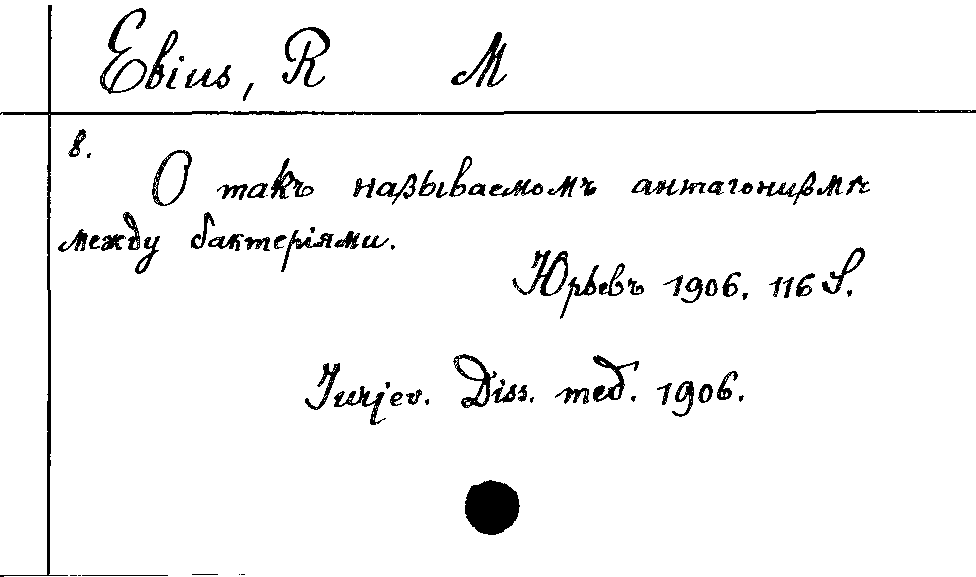 Ebius, R M
8.
О такъ называемомъ антагонизмѣ
между бактеріями.
Юрьевъ 1906. 116 S.
Jurjev. Diss. med. 1906.